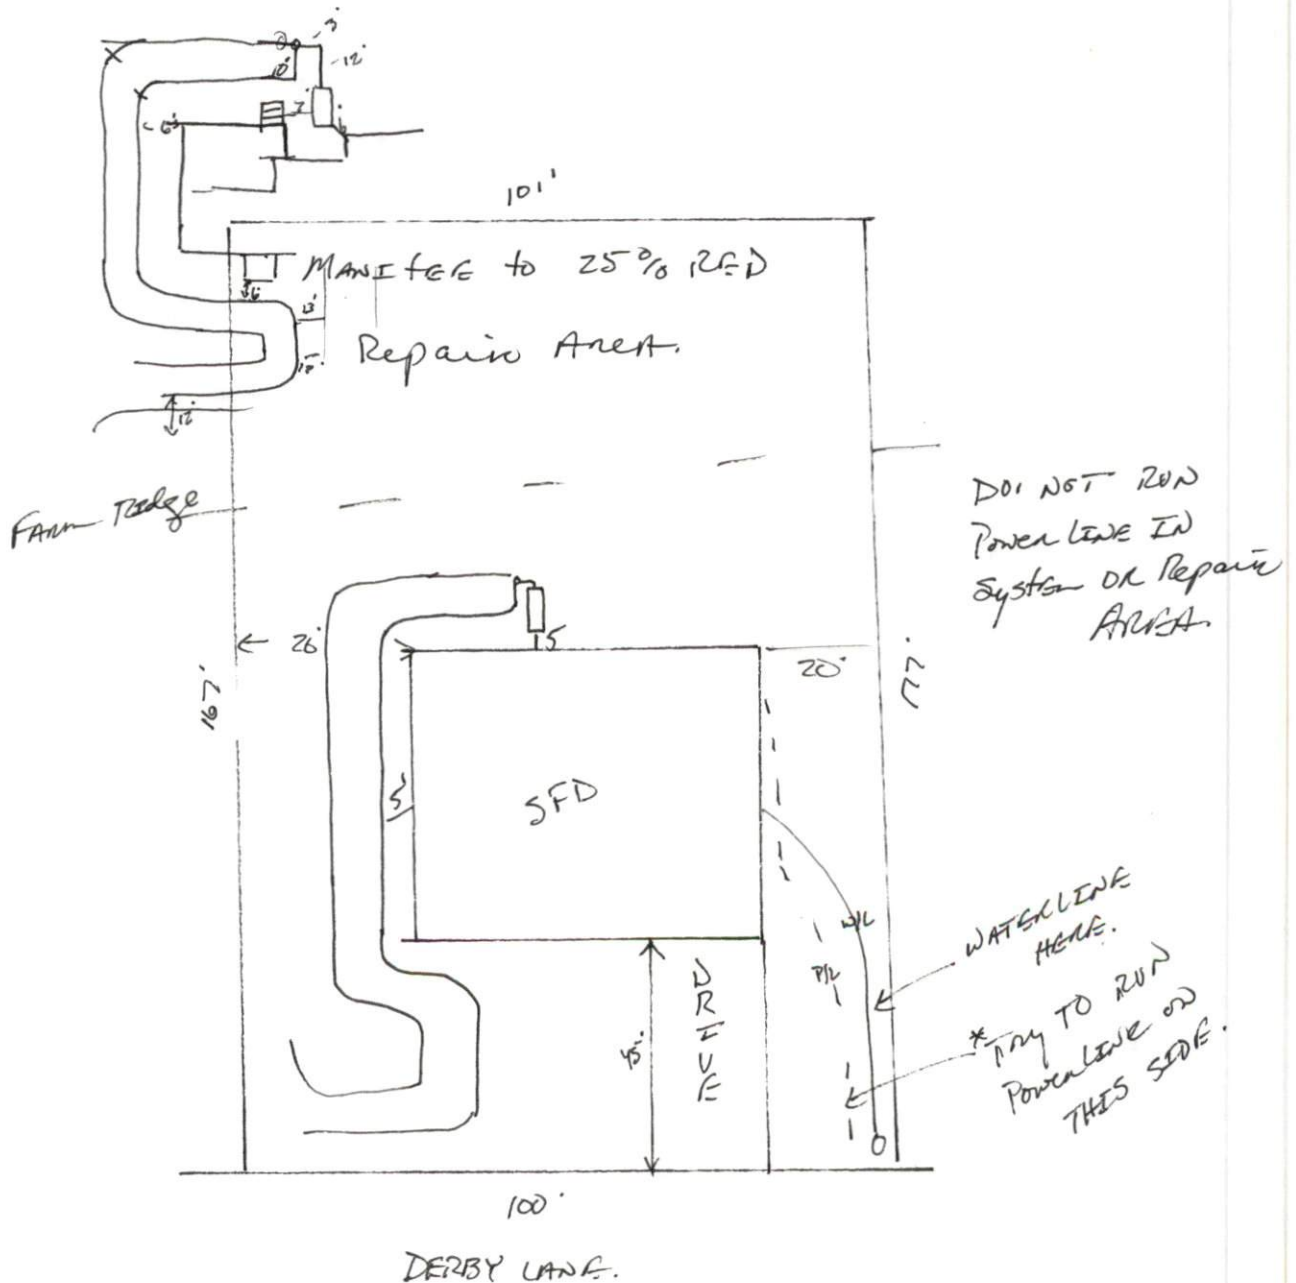 3'
12'
10'
7'
6'
101'
MANIfEE to 25% RED
6'
13'
Repair Area.
12'
Farm Ridge
DO NOT RUN
Power LINE IN
System OR Repair
AREA.
5
20'
20'
167'
177'
5'
SFD
W/L
P/L
WATERLINE
HERE.
DRIVE
45'
*Try TO RUN
PowerLINE on
THIS SIDE.
100'
DERBY LANE.